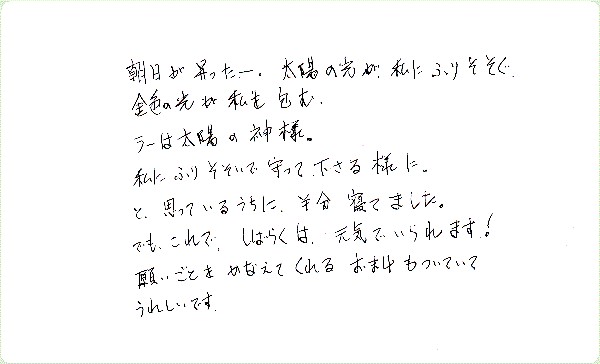 朝日が昇ったー。太陽の光が、私にふりそそぐ。
金色の光が私を包む。
ラーは太陽の神様。
私にふりそそいで守って下さる様に。
と、思っているうちに、半分寝てました。
でも、これで、しばらくは、元気でいられます!
願いごとをかなえてくれるおまけもついていて
うれしいです。